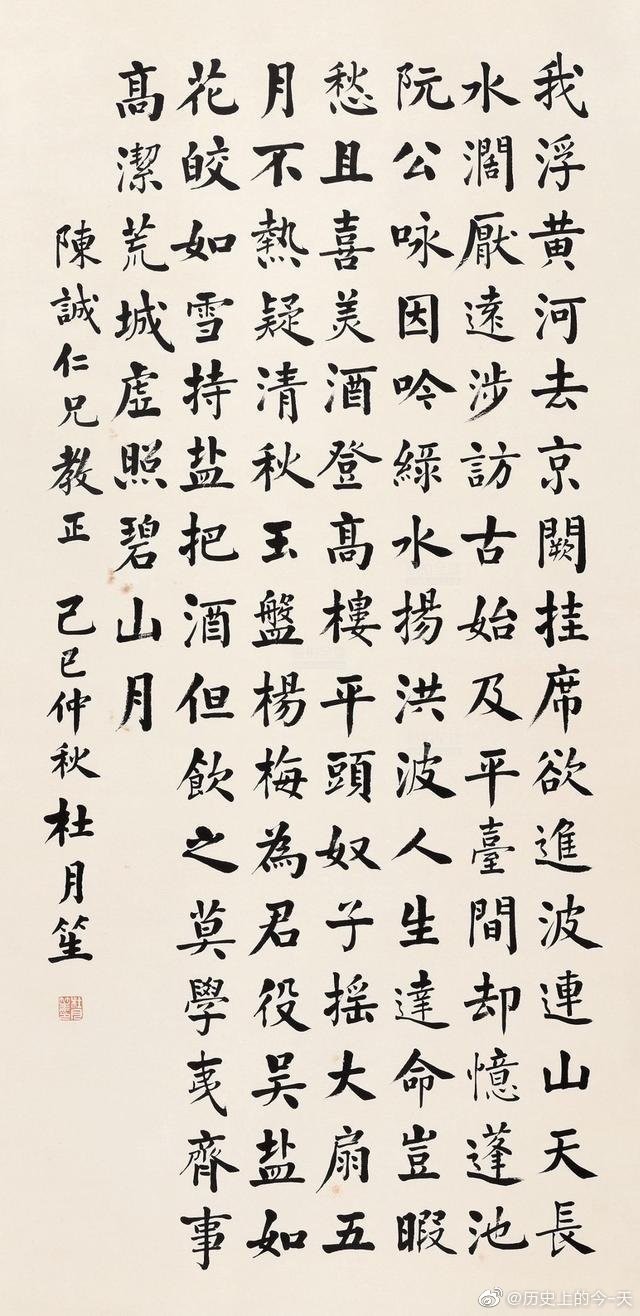 我浮黄河去京闕挂席欲進波連山天長
水濶厭遠涉訪古始及平臺間却憶蓬池
阮公咏因吟綠水揚洪波人生達命豈暇
愁且喜美酒登髙樓平頭奴子摇大扇五
月不熱疑清秋玉盤楊梅為君役吴盐如
花皎如雪持盐把酒但飲之莫學夷齊事
髙潔荒城虚照碧山月
陳誠仁兄教正 己巳仲秋 杜月笙
@历史上的今一天